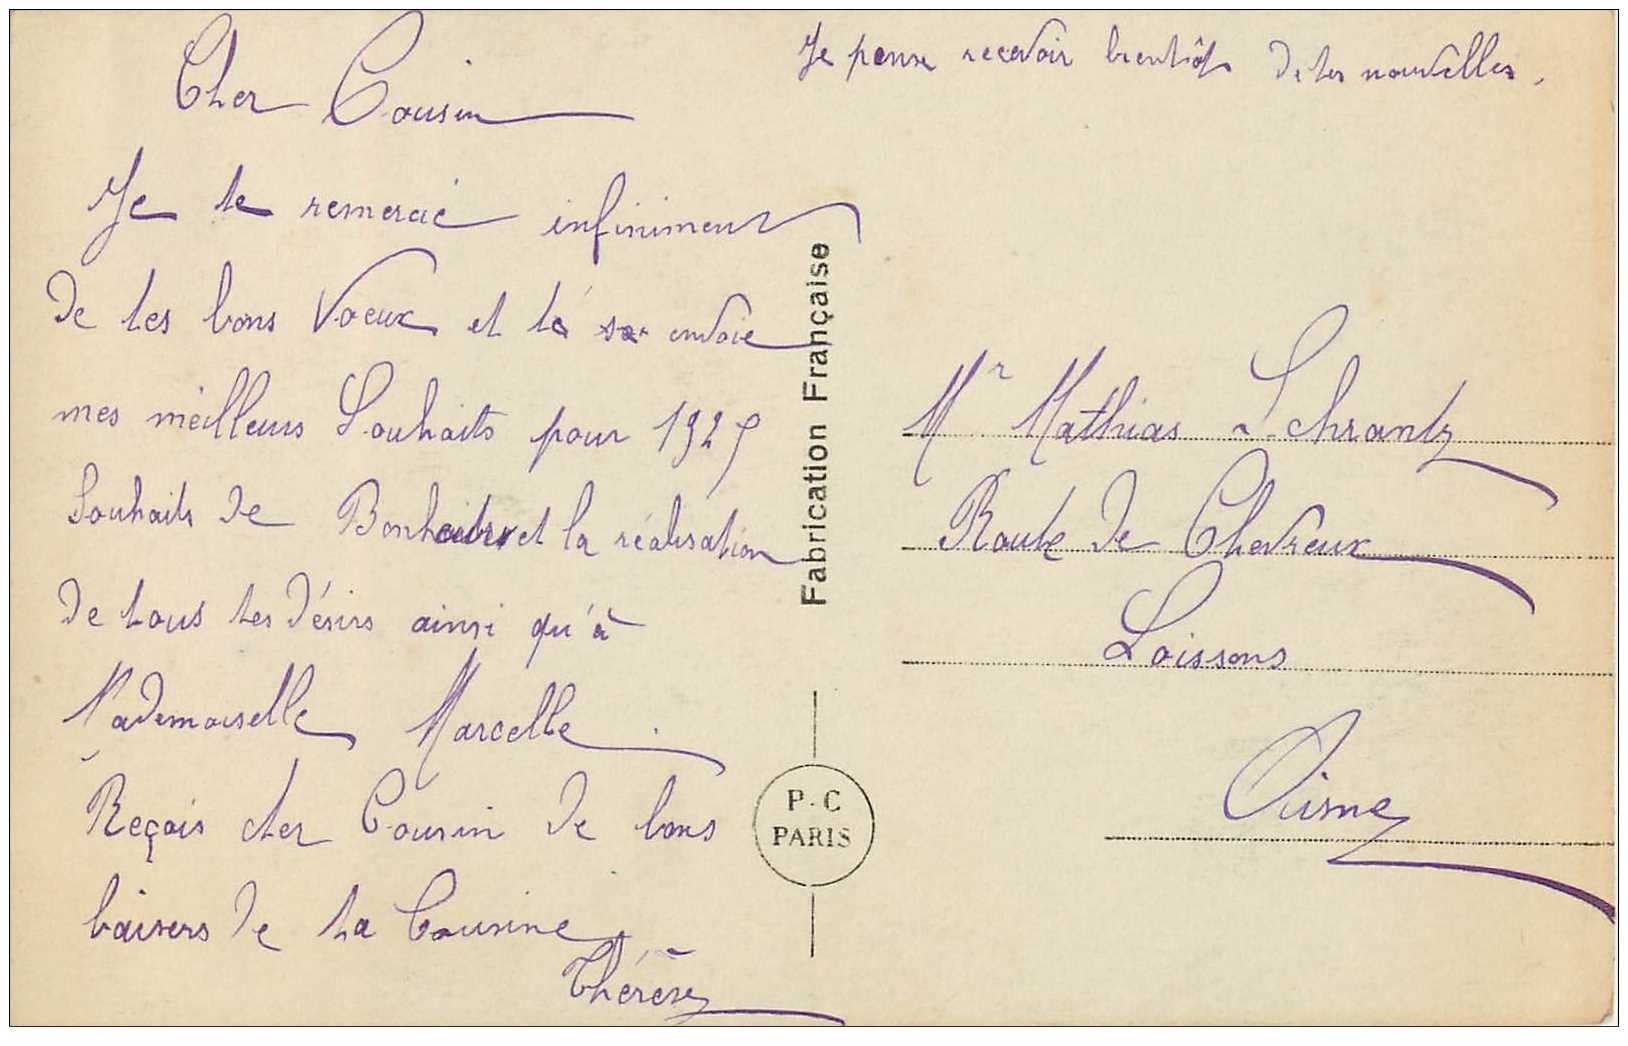 Cher Cousin
Je te remercie infiniment
de tes bons Voeux et te envoie
mes meilleurs Souhaits pour 1925
Souhaits de Bonheur et la réalisation
de tous tes désirs ainsi qu'à
Mademoiselle Marcelle.
Reçois cher Cousin de bons
baisers de ta Cousine
Thérèse
Je pense recevoir bientôt de tes nouvelles.
Fabrication Française
P.C
PARIS
Mr Mathias Schrantz
Route de Chevreux
Soissons
Aisne